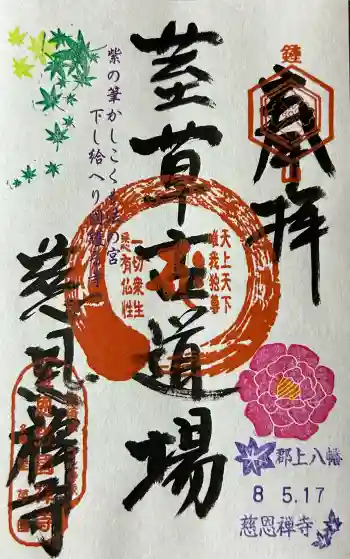 奉拝
鍾
荎草道場
天上天下
唯我独尊
一切衆生
悉有仏性
紫の筆かしこくも法の宮
下し給へり
慈恩禅寺
郡上八幡
8 5.17
慈恩禅寺